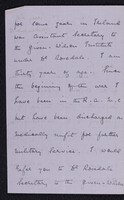 for some years in Ireland
was Assistant Secretary to
the Queen
Institute
under Dr
I am
thirty years of age. Since
the beginning of the war I
have been in the R.A.M.C
but have been discharged as
medically unfit for further
military service. I would
refer you to Dr
Secretary to the Queen